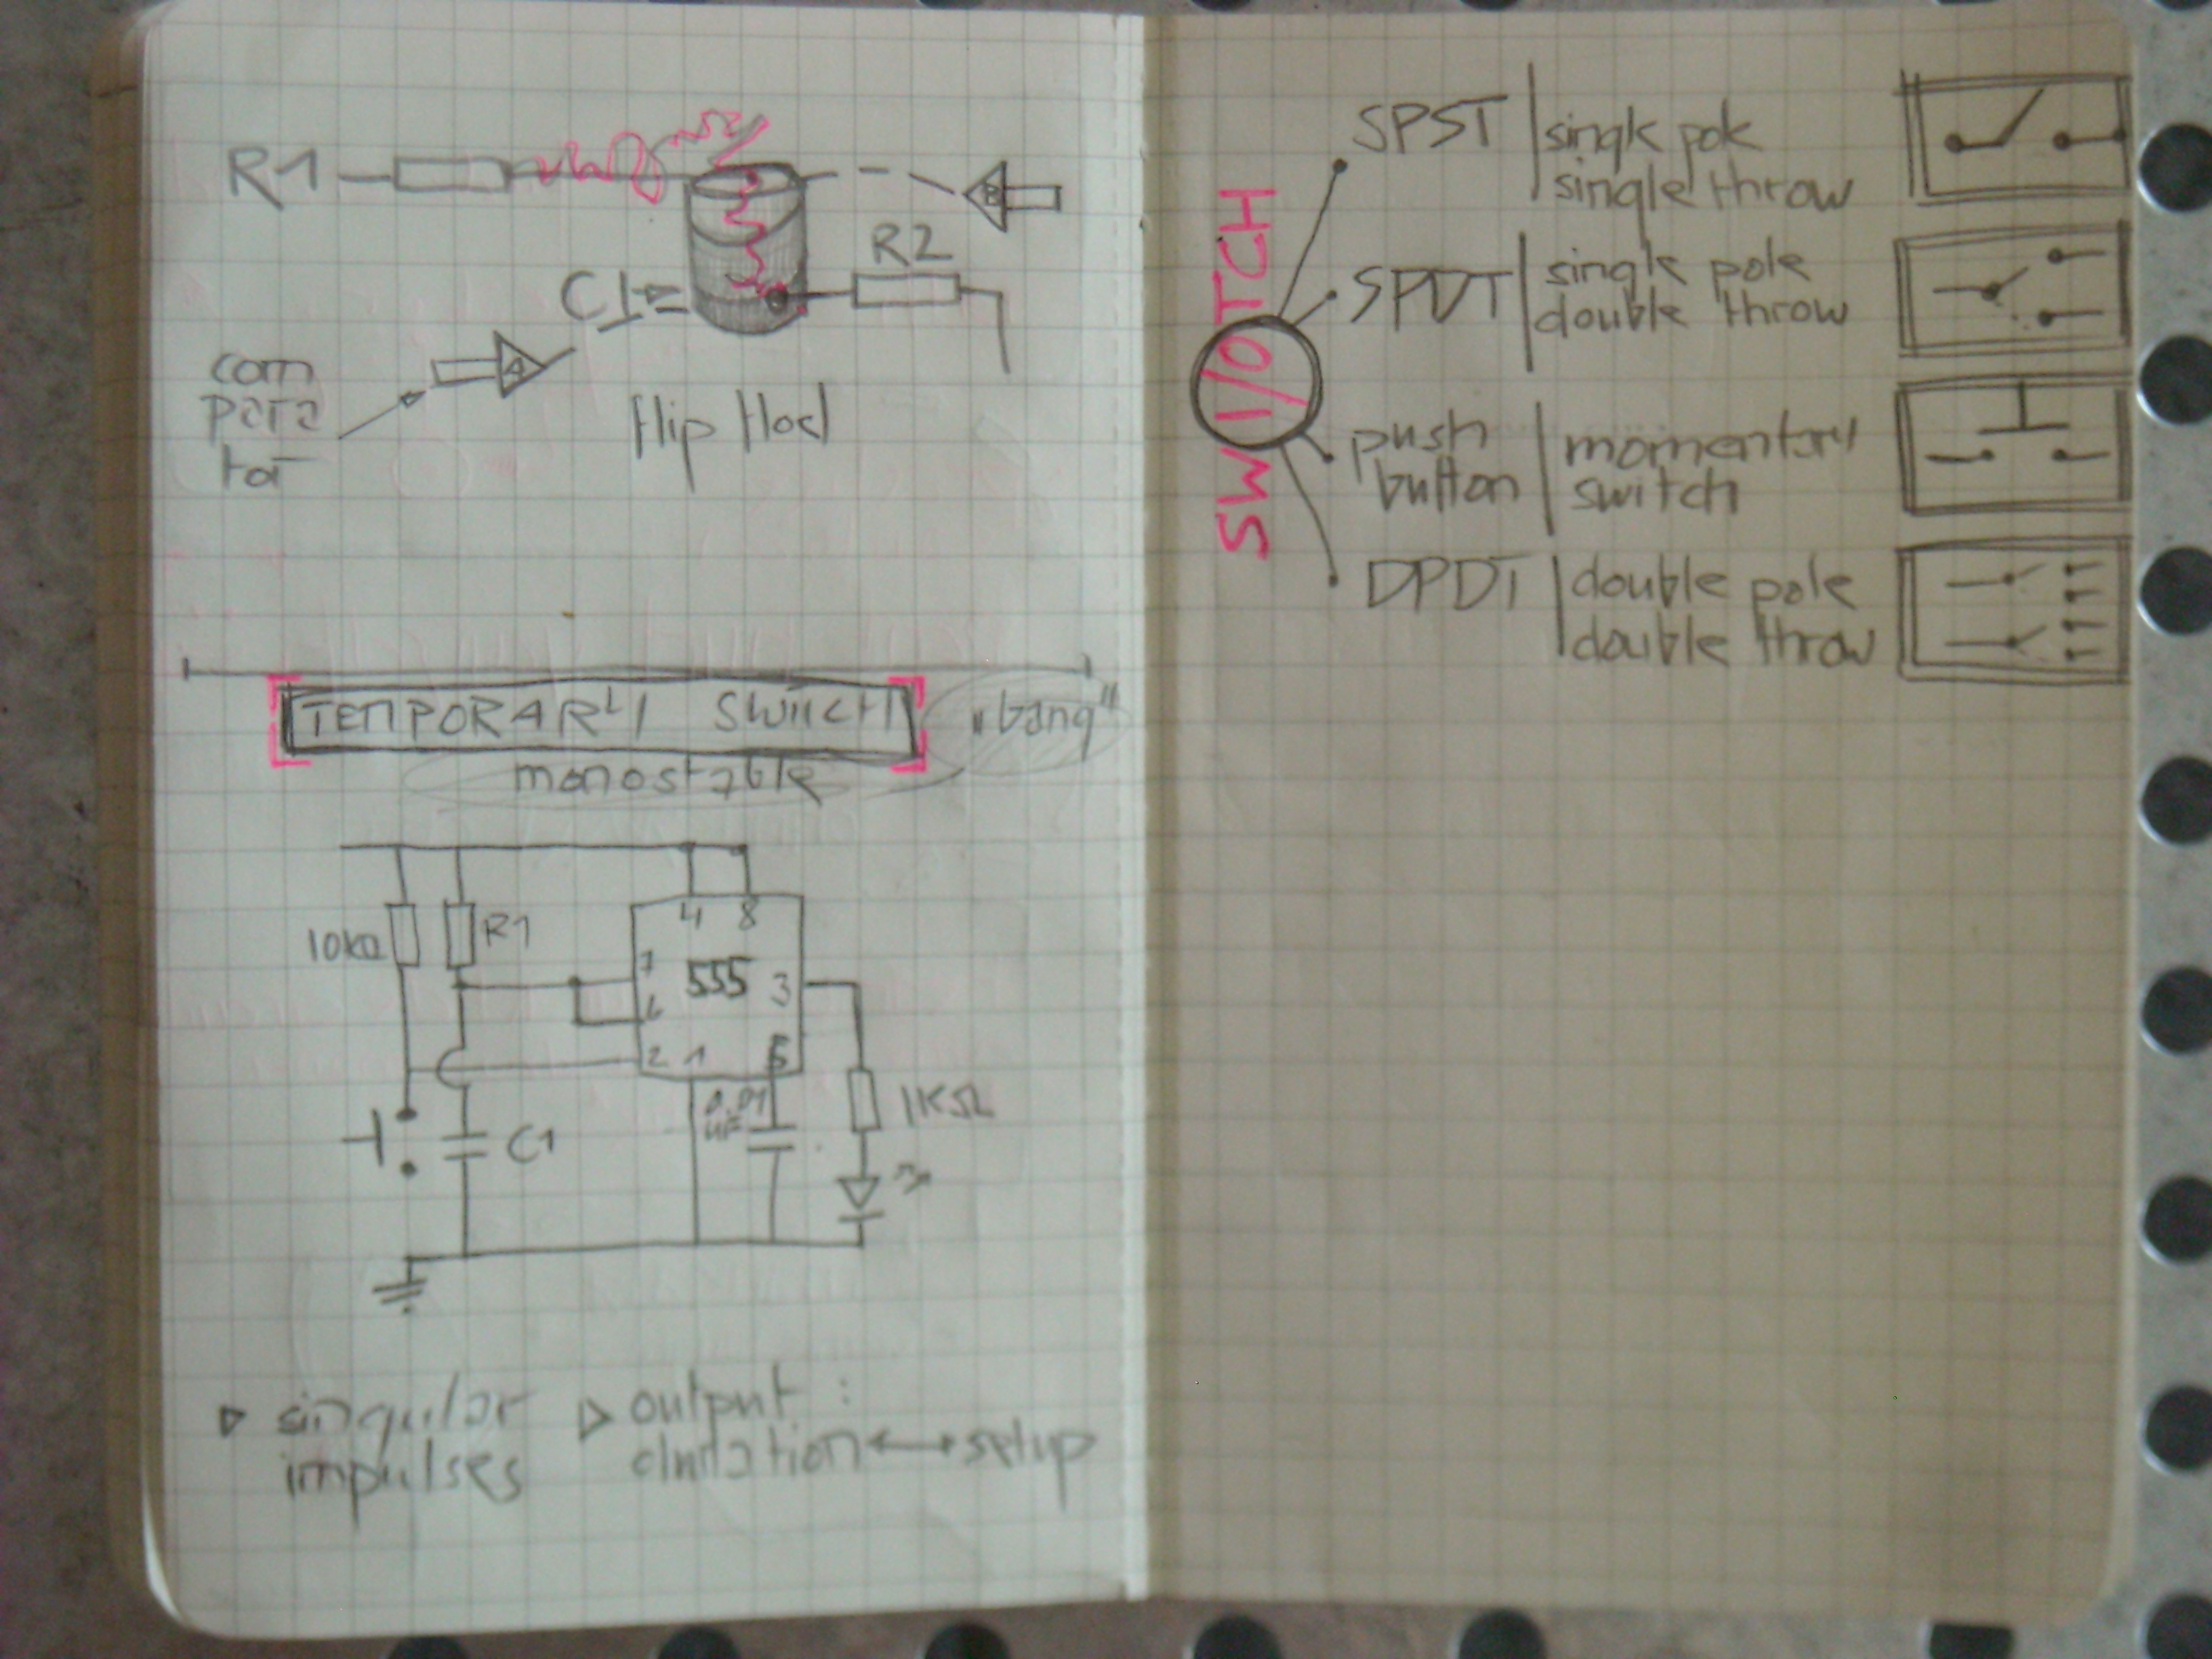 R1
R2
C1
com
para
tor
A
B
TEMPORARLY SWITCH
"bang"
monostable
10kΩ
R1
4 8
7
555
3
6
2 1 5
0.01
uF
1KΩ
C1
singular
impulses
output :
duration ↔ setup
SWI/OTCH
SPST
single pole
single throw
SPDT
single pole
double throw
push
button
momentary
switch
DPDT
double pole
double throw